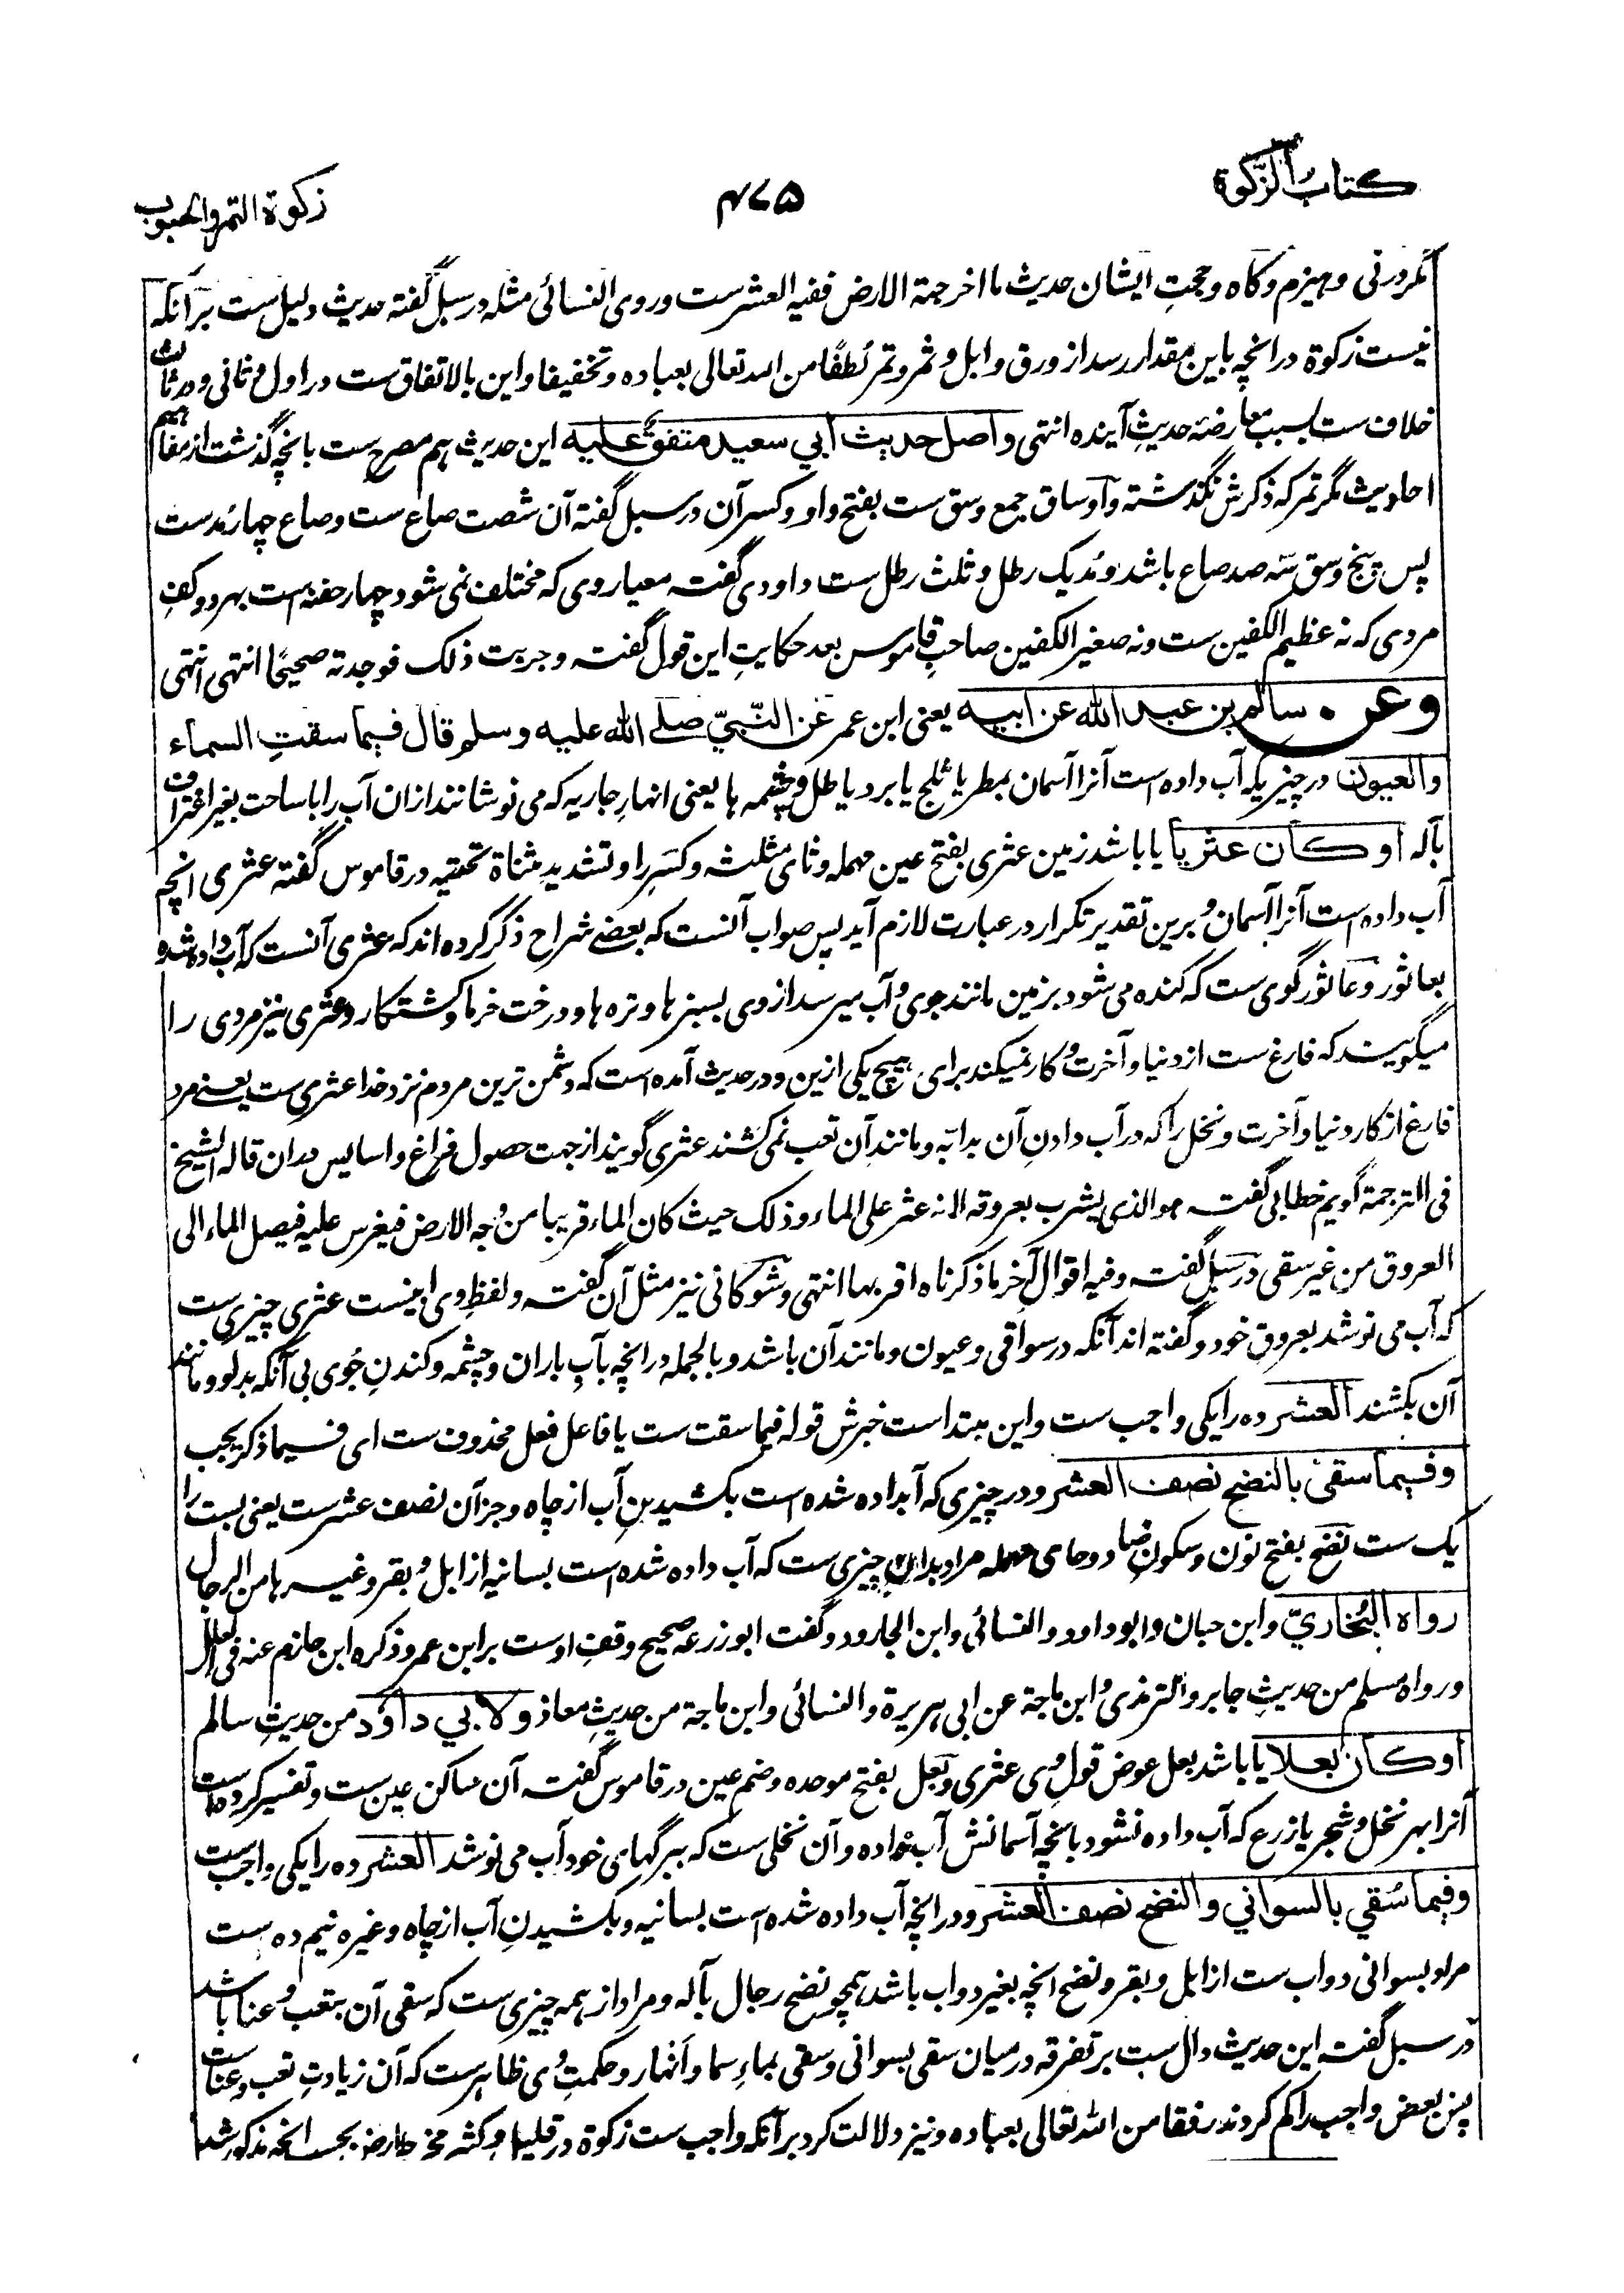 کتاب الزکوة
۴۷۵
زکوة التمر والحبوب
مگر در نی و هیزم و کاه و حجتِ ایشان حدیث ما اخرجته الارض ففیه العشرست وروی النسائی مثله در سبل گفته حدیث دلیل ست بر آنکه
نیست زکوة در انچه باین مقدار رسد از ورق و ابل و ثمر و تمر لُطفًا من الله تعالی بعباده و تخفیفا و این بالاتفاق ست در اول و ثانی و در ثالث
خلاف ست بسبب معارضهٔ حدیثِ آینده انتهی واصل حدیث أبي سعید متفقٌ علیه این حدیث هم مصرح ست بانچه گذشت از مفاهیم
احادیث مگر تمر که ذکرش نگذشته و اوساق جمع وسق ست بفتح واو و کسر آن در سبل گفته آن شصت صاع ست و صاع چهار مُدست
پس پنج وسق سّه صد صاع باشد و مُد یک رطل و ثلث رطل ست داودی گفته معیار وی که مختلف نمی شود چهار حفنه است بهر دو کفِ
مردی که نه عظیم الکفین ست و نه صغیر الکفین صاحب قاموس بعد حکایتِ این قول گفته و جربت ذلک فوجدته صحیحًا انتهی انتهی
وعن سالم بن عبد الله عن ابیه یعنی ابن عمر عن النّبيّ صلے الله علیه وسلم قال فیما سقتِ السماء
والعیون در چیزیکه آب داده است آنرا آسمان بمطر یا ثلج یا برد یا طل و چشمه ها یعنی انهارِ جاریه که می نوشانند ازان آب را با ساحت بغیر اغتراف
بآله او کان عثریا یا باشد زمین عثری بفتح عین مهمله و ثای مثلث و کسرِ را و تشدیدِ مثناة تحتیه در قاموس گفته عثری انچه
آب داده است آنرا آسمان و برین تقدیر تکرار در عبارت لازم آید پس صواب آنست که بعضے شراح ذکر کرده اند که عثری آنست که آب داده شد
بعاثور و عاثور گوی ست که کنده می شود بزمین مانند جوی و آب میرسد از وی بسبزها و تره ها و درخت خرما و کشتکار و عثری نیز مردی را
میگویند که فارغ ست از دنیا و آخرت و کار نمیکند برای هیچ یکی ازین و در حدیث آمده است که دشمن ترین مردم نزد خدا عثری ست یعنے مرد
فارغ از کار دنیا و آخرت و نخل را که در آب دادنِ آن بدابه و مانند آن تعب نمی کشند عثری گویند از جهت حصول فراغ و اسایس بدان قاله الشیخ
فی الترجمة گویم خطابی گفته هو الذی یشرب بعروقه لانه عثر علی الماء و ذلک حیث کان الماء قریبا من وجه الارض فیغرس علیه فیصل الماء الی
العروق من غیر سقی در سبل گفته و فیه اقوال اُخر ما ذکرناه اقربها انتهی و شوکانی نیز مثل آن گفته و لفظِ وی اینست عثری چیزی ست
که آب می نوشد بعروق خود و گفته اند آنکه در سواقی و عیون و مانند آن باشد و بالجمله در انچه بآبِ باران و چشمه و کندنِ جُوی بی آنکه بدلو و مانند
آن بکشند العشر ده را یکی واجب ست و این مبتداست خبرش قوله فیما سقت ست یا فاعل فعل محذوف ست ای فیما ذکر یجب
وفیما سقی بالنضح نصف العشر و در چیزی که آبداده شده است بکشیدنِ آب از چاه و جز آن نصف عشرست یعنی بست را
یک ست نضح بفتح نون و سکون ضاد و حای مهمله مراد بدان چیزی ست که آب داده شده است بسانیه از ابل و بقر و غیرها من الرجال
رواه البُخاريّ و ابن حبان و ابوداود و النسائی و ابن الجارود و گفت ابوزرعه صحیح وقفِ اوست بر ابن عمر و ذکره ابن حازم عنه فی العلل
و رواه مسلم من حدیثِ جابر و الترمذی و ابن ماجة عن ابی هریرة و النسائی و ابن ماجة من حدیثِ معاذ ولابي داؤد من حدیثِ سالم
اوکان بعلا یا باشد بعل عوض قولِ وی عثری و بعل بفتح موحده و ضم عین در قاموس گفته آن ساکن عین ست و تفسیر کرده است
آنرا بهر نخل و شجر یا زرع که آب داده نشود بانچه آسمانش آب داده و آن نخلی ست که ببرگهای خود آب می نوشد العشر ده را یکی واجب ست
وفیما سُقي بالسواني والنضح نصف العشر و در انچه آب داده شده است بسانیه و بکشیدنِ آب از چاه و غیره نیم ده است
مراد بسوانی دواب ست از ابل و بقر و نضح انچه بغیر دواب باشد همچو نضح رجال بآله و مراد از همه چیزی ست که سقی آن بتعب و عنا باشد
در سبل گفته این حدیث دال ست بر تفرقه در میان سقی بسوانی و سقی بماءِ سما و انهار و حکمتِ وی ظاهرست که آن زیادتِ تعب و عناست
پس بعض واجب را کم کردند رفقا من الله تعالی بعباده و نیز دلالت کرد بر آنکه واجب ست زکوة در قلیل و کثیر مخرج ارض بحسب انچه مذکور شد